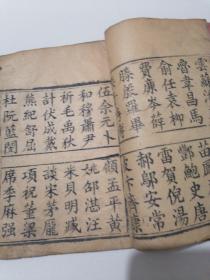 雲蘇
魯韋昌馬
苗鳳
俞任袁柳
酆鮑史唐
費廉岑薛
雷賀倪湯
滕殷羅畢
郝鄔安常
伍余元卜
顧孟平黃
和穆蕭尹
姚邵湛汪
祈毛禹秋
米貝明臧
計伏成戴
談宋茅龐
熊紀舒屈
項祝董梁
杜阮藍閔
席季麻强